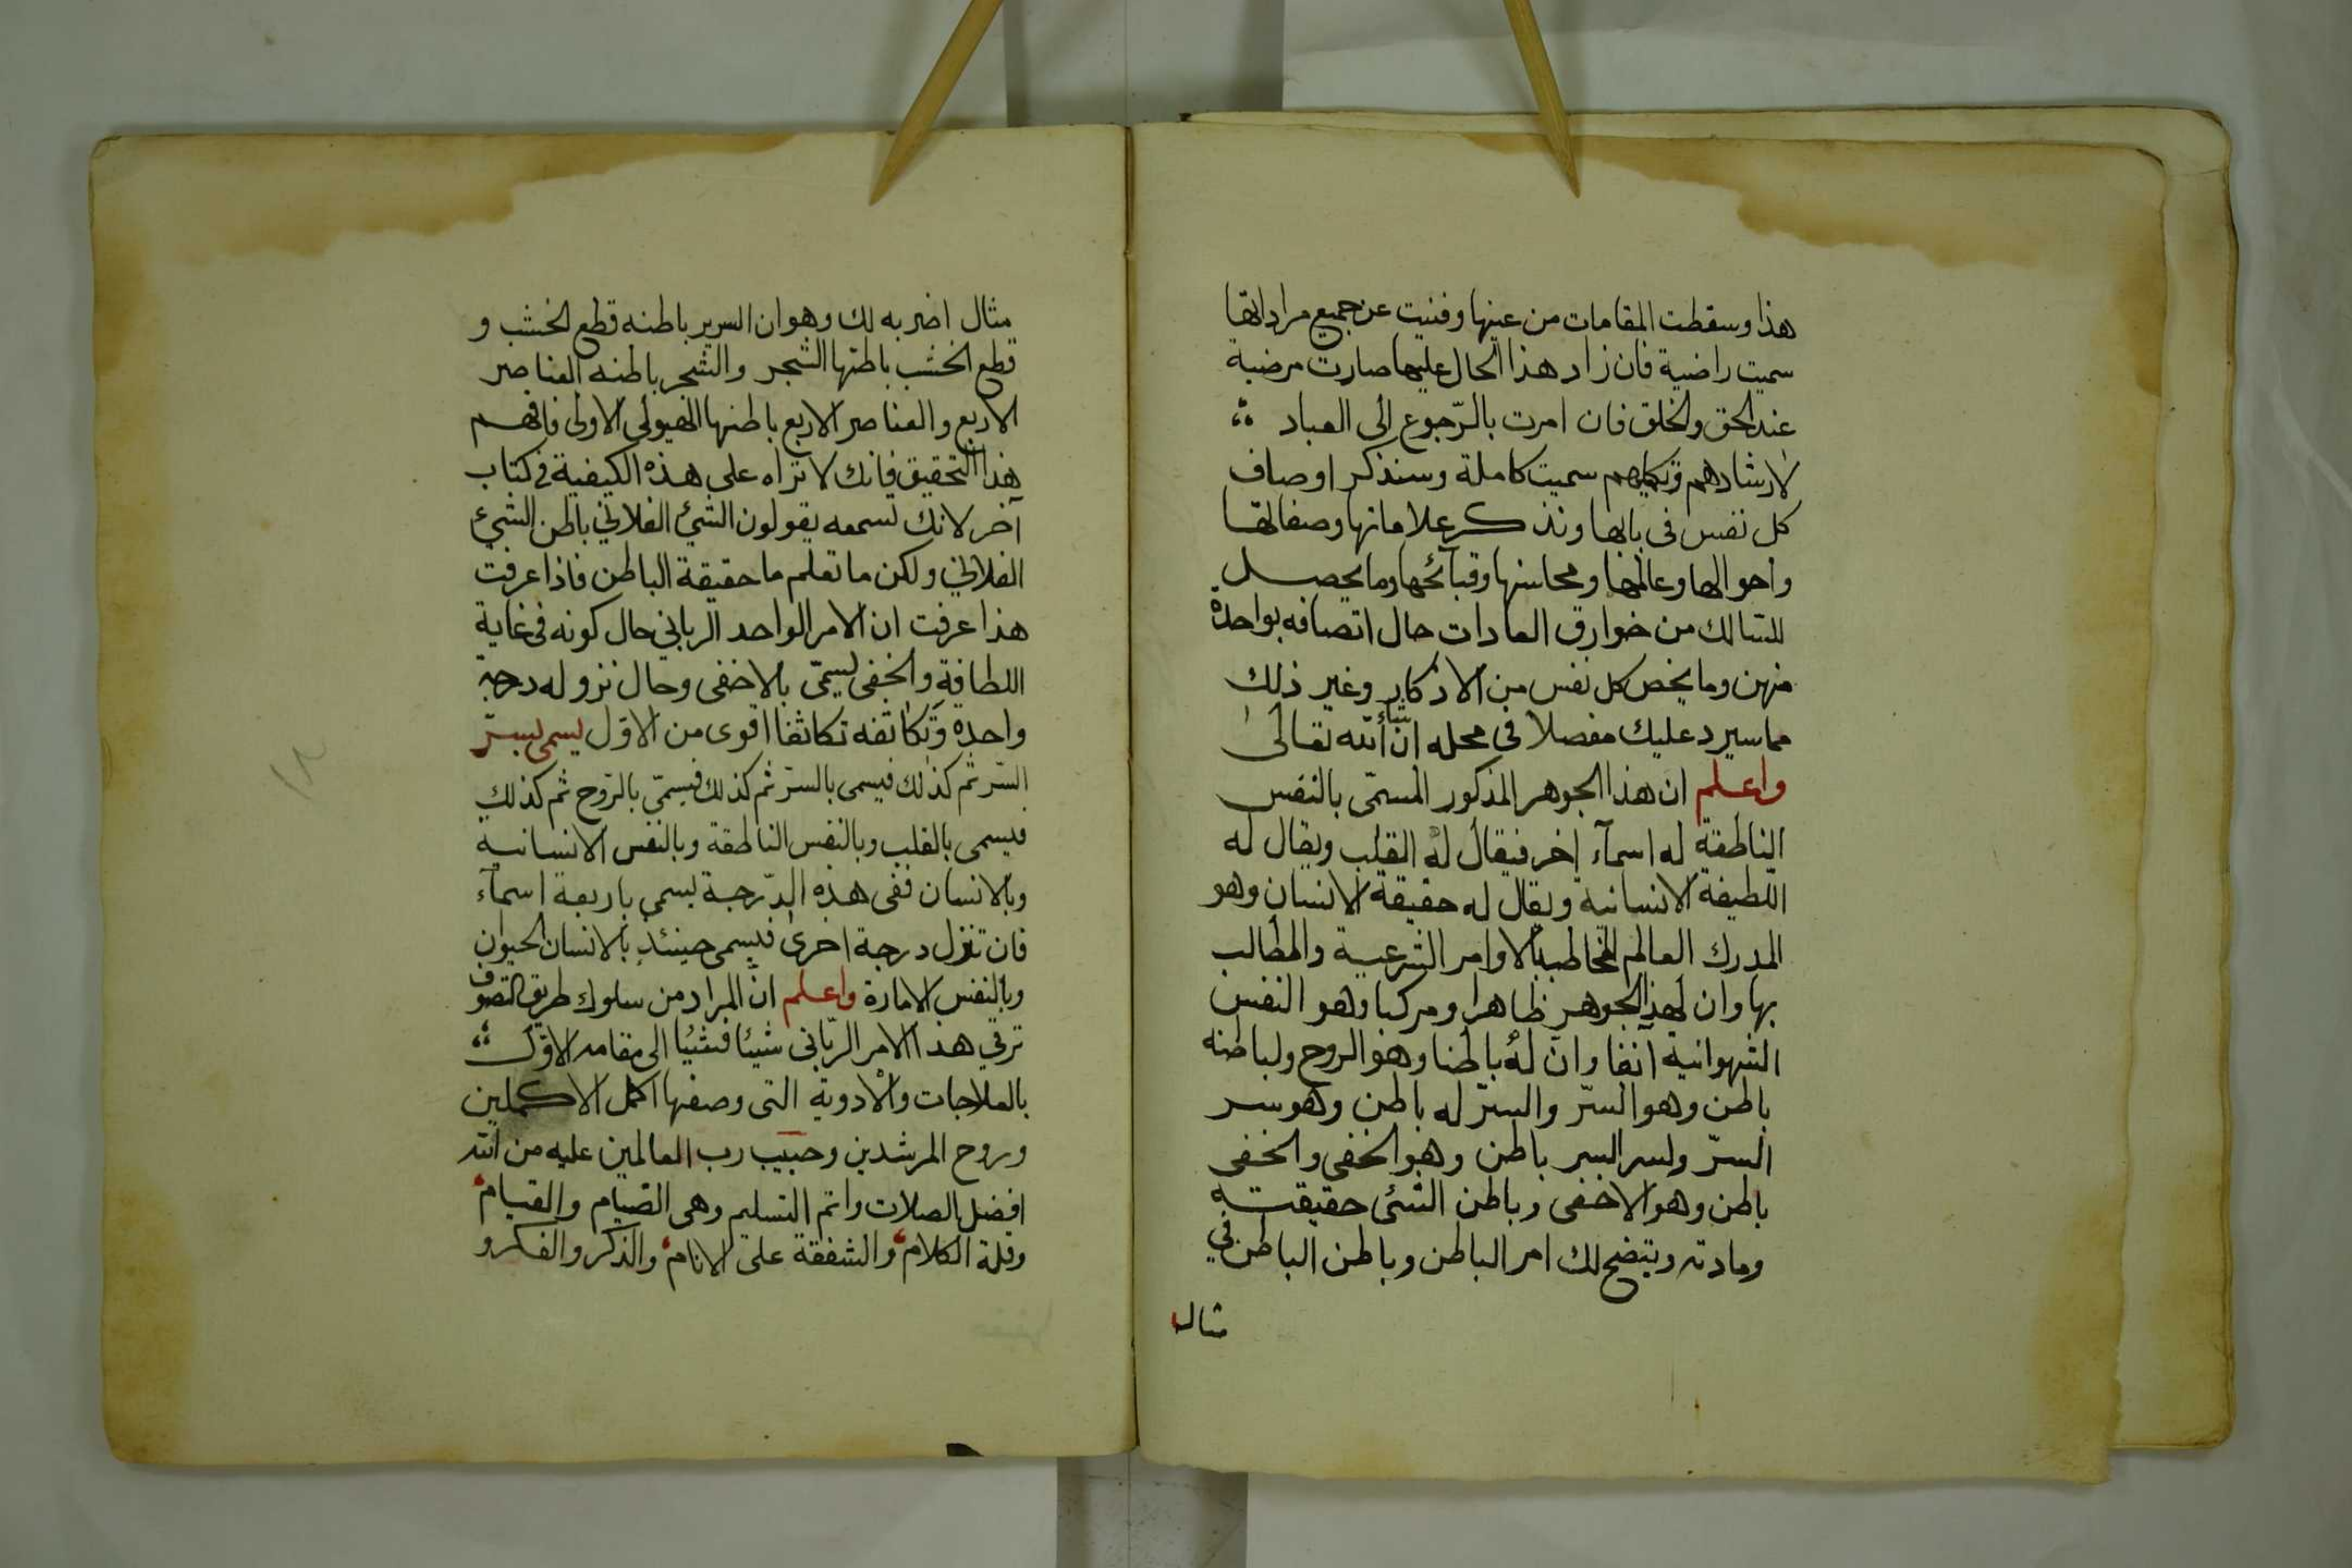 هذا وسقطت المقامات من عينها وفنيت عن جميع مراداتها
سميت راضية فان زاد هذا الحال عليها صارت مرضية
عند الحق والخلق فان امرت بالرّجوع الى العباد
لارشادهم وتكميلهم سميت كاملة وسنذكر اوصاف
كل نفس في بابها ونذكر علاماتها وصفاتها
واحوالها وعالمها ومحاسنها وقبآئحها وما يحصل
للسّالك من خوارق العادات حال اتصافه بواحدة
منهن وما يخص كل نفس من الاذكار وغير ذلك
مما سيرد عليك مفصلا في محله ان شاء الله تعالى
واعلم ان هذا الجوهر المذكور المسمّى بالنفس
الناطقة له اسمآء اخر فيقال له القلب ويقال له
اللّطيفة الانسانية ويقال له حقيقة الانسان وهو
المدرك العالم المخاطب بالاوامر الشرعية والمطالب
بها وان لهذا الجوهر ظاهرا ومركبا وهو النفس
الشهوانية آنفا وان له باطنا وهو الروح ولباطنه
باطن وهو السرّ والسرّ له باطن وهو سر
السرّ ولسر السر باطن وهو الخفي والخفي
باطن وهو الاخفى وباطن الشئ حقيقته
ومادته ويتضح لك امر الباطن وباطن الباطن في
مثال
مثال اضربه لك وهو ان السرير باطنه قطع الخشب و
قطع الخشب باطنها الشجر والشجر باطنه العناصر
الاربع والعناصر الاربع باطنها الهيولى الاولى فافهم
هذا التحقيق فانك لا تراه على هذه الكيفية في كتاب
آخر لانك تسمعه يقولون الشئ الفلاني باطن الشئ
الفلاني ولكن ما تعلم ما حقيقة الباطن فاذا عرفت
هذا عرفت ان الامر الواحد الرباني حال كونه في غاية
اللطافة والخفى يسمّى بالاخفى وحال نزوله درجة
واحدة وتكاثفه تكاثفا اقوى من الاوّل يسمى بسرّ
السّر ثم كذلك فيسمى بالسرّ ثم كذلك فيسمّى بالرّوح ثم كذلك
فيسمى بالقلب وبالنفس الناطقة وبالنفس الانسانية
وبالانسان ففى هذه الدّرجة يسمى باربعة اسمآء
فان تنزل درجة اخرى فيسمى حينئذ بالانسان الحيوان
وبالنفس الامارة واعلم انّ المراد من سلوك طريق التصوف
ترقي هذا الامر الرّباني شيئا فشيئا الى مقامه الاوّل
بالعلاجات والادوية التى وصفها اكمل الاكملين
وروح المرشدين وحبيب رب العالمين عليه من الله
افضل الصلات واتم التسليم وهى الصّيام والقيام
وقلة الكلام والشفقة على الانام والذكر والفكر و